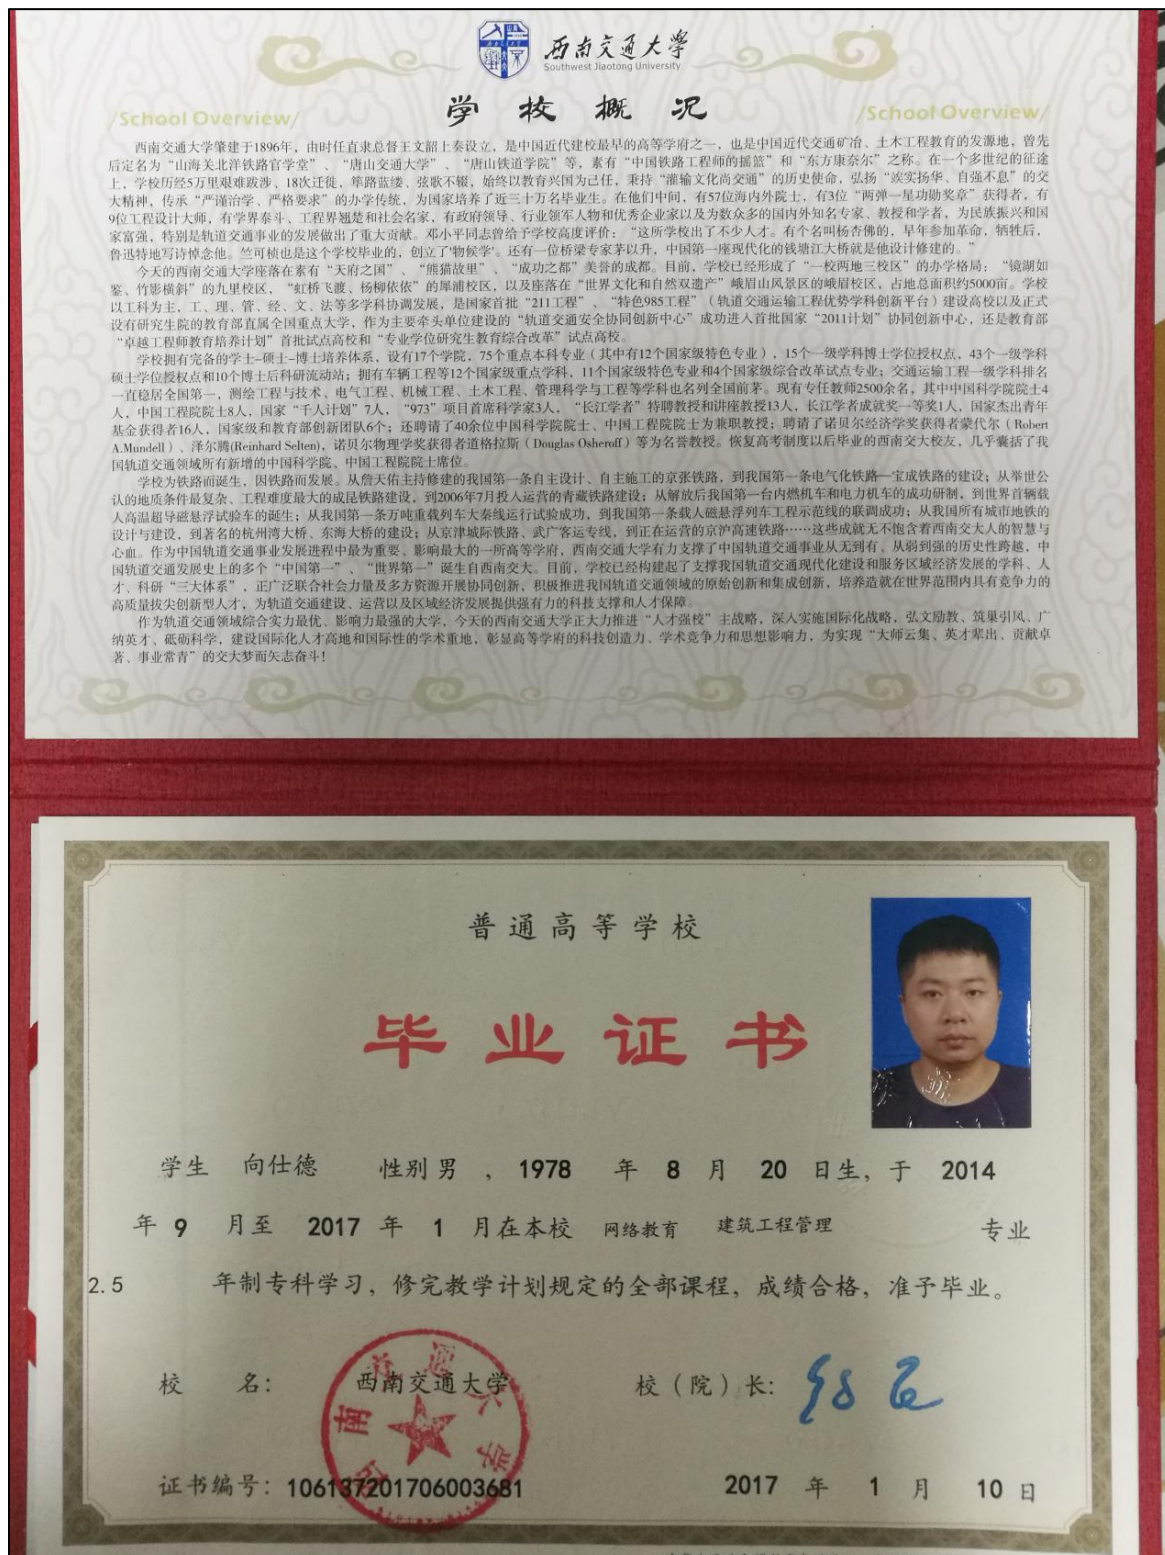 西南交通大学
Southwest Jiaotong University
学校概况
/School Overview/ /School Overview/
西南交通大学肇建于1896年，由时任直隶总督王文韶上奏设立，是中国近代建校最早的高等学府之一，也是中国近代交通矿冶、土木工程教育的发源地，曾先
后定名为“山海关北洋铁路官学堂”、“唐山交通大学”、“唐山铁道学院”等，素有“中国铁路工程师的摇篮”和“东方康奈尔”之称。在一个多世纪的征途
上，学校历经5万里艰难跋涉、18次迁徙，筚路蓝缕，弦歌不辍，始终以教育兴国为己任，秉持“灌输文化尚交通”的历史使命，弘扬“竢实扬华、自强不息”的交
大精神，传承“严谨治学、严格要求”的办学传统，为国家培养了近三十万名毕业生。在他们中间，有57位海内外院士，有3位“两弹一星功勋奖章”获得者，有
9位工程设计大师，有学界泰斗、工程界翘楚和社会名家，有政府领导、行业领军人物和优秀企业家以及为数众多的国内外知名专家、教授和学者，为民族振兴和国
家富强，特别是轨道交通事业的发展做出了重大贡献。邓小平同志曾给予学校高度评价：“这所学校出了不少人才。有个名叫杨杏佛的，早年参加革命，牺牲后，
鲁迅特地写诗悼念他。竺可桢也是这个学校毕业的，创立了'物候学'。还有一位桥梁专家茅以升，中国第一座现代化的钱塘江大桥就是他设计修建的。”
今天的西南交通大学座落在素有“天府之国”、“熊猫故里”、“成功之都”美誉的成都。目前，学校已经形成了“一校两地三校区”的办学格局：“镜湖如
鉴、竹影横斜”的九里校区，“虹桥飞渡、杨柳依依”的犀浦校区，以及座落在“世界文化和自然双遗产”峨眉山风景区的峨眉校区，占地总面积约5000亩。学校
以工科为主，工、理、管、经、文、法等多学科协调发展，是国家首批“211工程”、“特色985工程”（轨道交通运输工程优势学科创新平台）建设高校以及正式
设有研究生院的教育部直属全国重点大学，作为主要牵头单位建设的“轨道交通安全协同创新中心”成功进入首批国家“2011计划”协同创新中心，还是教育部
“卓越工程师教育培养计划”首批试点高校和“专业学位研究生教育综合改革”试点高校。
学校拥有完备的学士-硕士-博士培养体系，设有17个学院，75个重点本科专业（其中有12个国家级特色专业），15个一级学科博士学位授权点，43个一级学科
硕士学位授权点和10个博士后科研流动站；拥有车辆工程等12个国家级重点学科，11个国家级特色专业和4个国家级综合改革试点专业；交通运输工程一级学科排名
一直稳居全国第一，测绘工程与技术、电气工程、机械工程、土木工程、管理科学与工程等学科也名列全国前茅。现有专任教师2500余名，其中中国科学院院士4
人，中国工程院院士8人，国家“千人计划”7人，“973”项目首席科学家3人，“长江学者”特聘教授和讲座教授13人，长江学者成就奖一等奖1人，国家杰出青年
基金获得者16人，国家级和教育部创新团队6个；还聘请了40余位中国科学院院士、中国工程院院士为兼职教授；聘请了诺贝尔经济学奖获得者蒙代尔（Robert
A.Mundell）、泽尔腾(Reinhard Selten)，诺贝尔物理学奖获得者道格拉斯（Douglas Osheroff）等为名誉教授。恢复高考制度以后毕业的西南交大校友，几乎囊括了我
国轨道交通领域所有新增的中国科学院、中国工程院院士席位。
学校为铁路而诞生，因铁路而发展。从詹天佑主持修建的我国第一条自主设计、自主施工的京张铁路，到我国第一条电气化铁路—宝成铁路的建设；从举世公
认的地质条件最复杂、工程难度最大的成昆铁路建设，到2006年7月投入运营的青藏铁路建设；从解放后我国第一台内燃机车和电力机车的成功研制，到世界首辆载
人高温超导磁悬浮试验车的诞生；从我国第一条万吨重载列车大秦线运行试验成功，到我国第一条载人磁悬浮列车工程示范线的联调成功；从我国所有城市地铁的
设计与建设，到著名的杭州湾大桥、东海大桥的建设；从京津城际铁路、武广客运专线，到正在运营的京沪高速铁路……这些成就无不饱含着西南交大人的智慧与
心血。作为中国轨道交通事业发展进程中最为重要、影响最大的一所高等学府，西南交通大学有力支撑了中国轨道交通事业从无到有、从弱到强的历史性跨越，中
国轨道交通发展史上的多个“中国第一”、“世界第一”诞生自西南交大。目前，学校已经构建起了支撑我国轨道交通现代化建设和服务区域经济发展的学科、人
才、科研“三大体系”，正广泛联合社会力量及多方资源开展协同创新，积极推进我国轨道交通领域的原始创新和集成创新，培养造就在世界范围内具有竞争力的
高质量拔尖创新型人才，为轨道交通建设、运营以及区域经济发展提供强有力的科技支撑和人才保障
作为轨道交通领域综合实力最优、影响力最强的大学，今天的西南交通大学正大力推进“人才强校”主战略，深入实施国际化战略，弘文励教、筑巢引凤、广
纳英才、砥砺科学，建设国际化人才高地和国际性的学术重地，彰显高等学府的科技创造力、学术竞争力和思想影响力，为实现“大师云集、英才辈出、贡献卓
著、事业常青”的交大梦而矢志奋斗！
普通高等学校
毕业证书
学生 向仕德 性别 男 ，1978 年 8 月 20 日生，于 2014
年 9 月至 2017 年 1 月在本校 网络教育 建筑工程管理 专业
2.5 年制专科学习，修完教学计划规定的全部课程，成绩合格，准予毕业。
校 名： 西南交通大学 校（院）长：
西南交通大学
证书编号：106137201706003681 2017 年 1 月 10 日